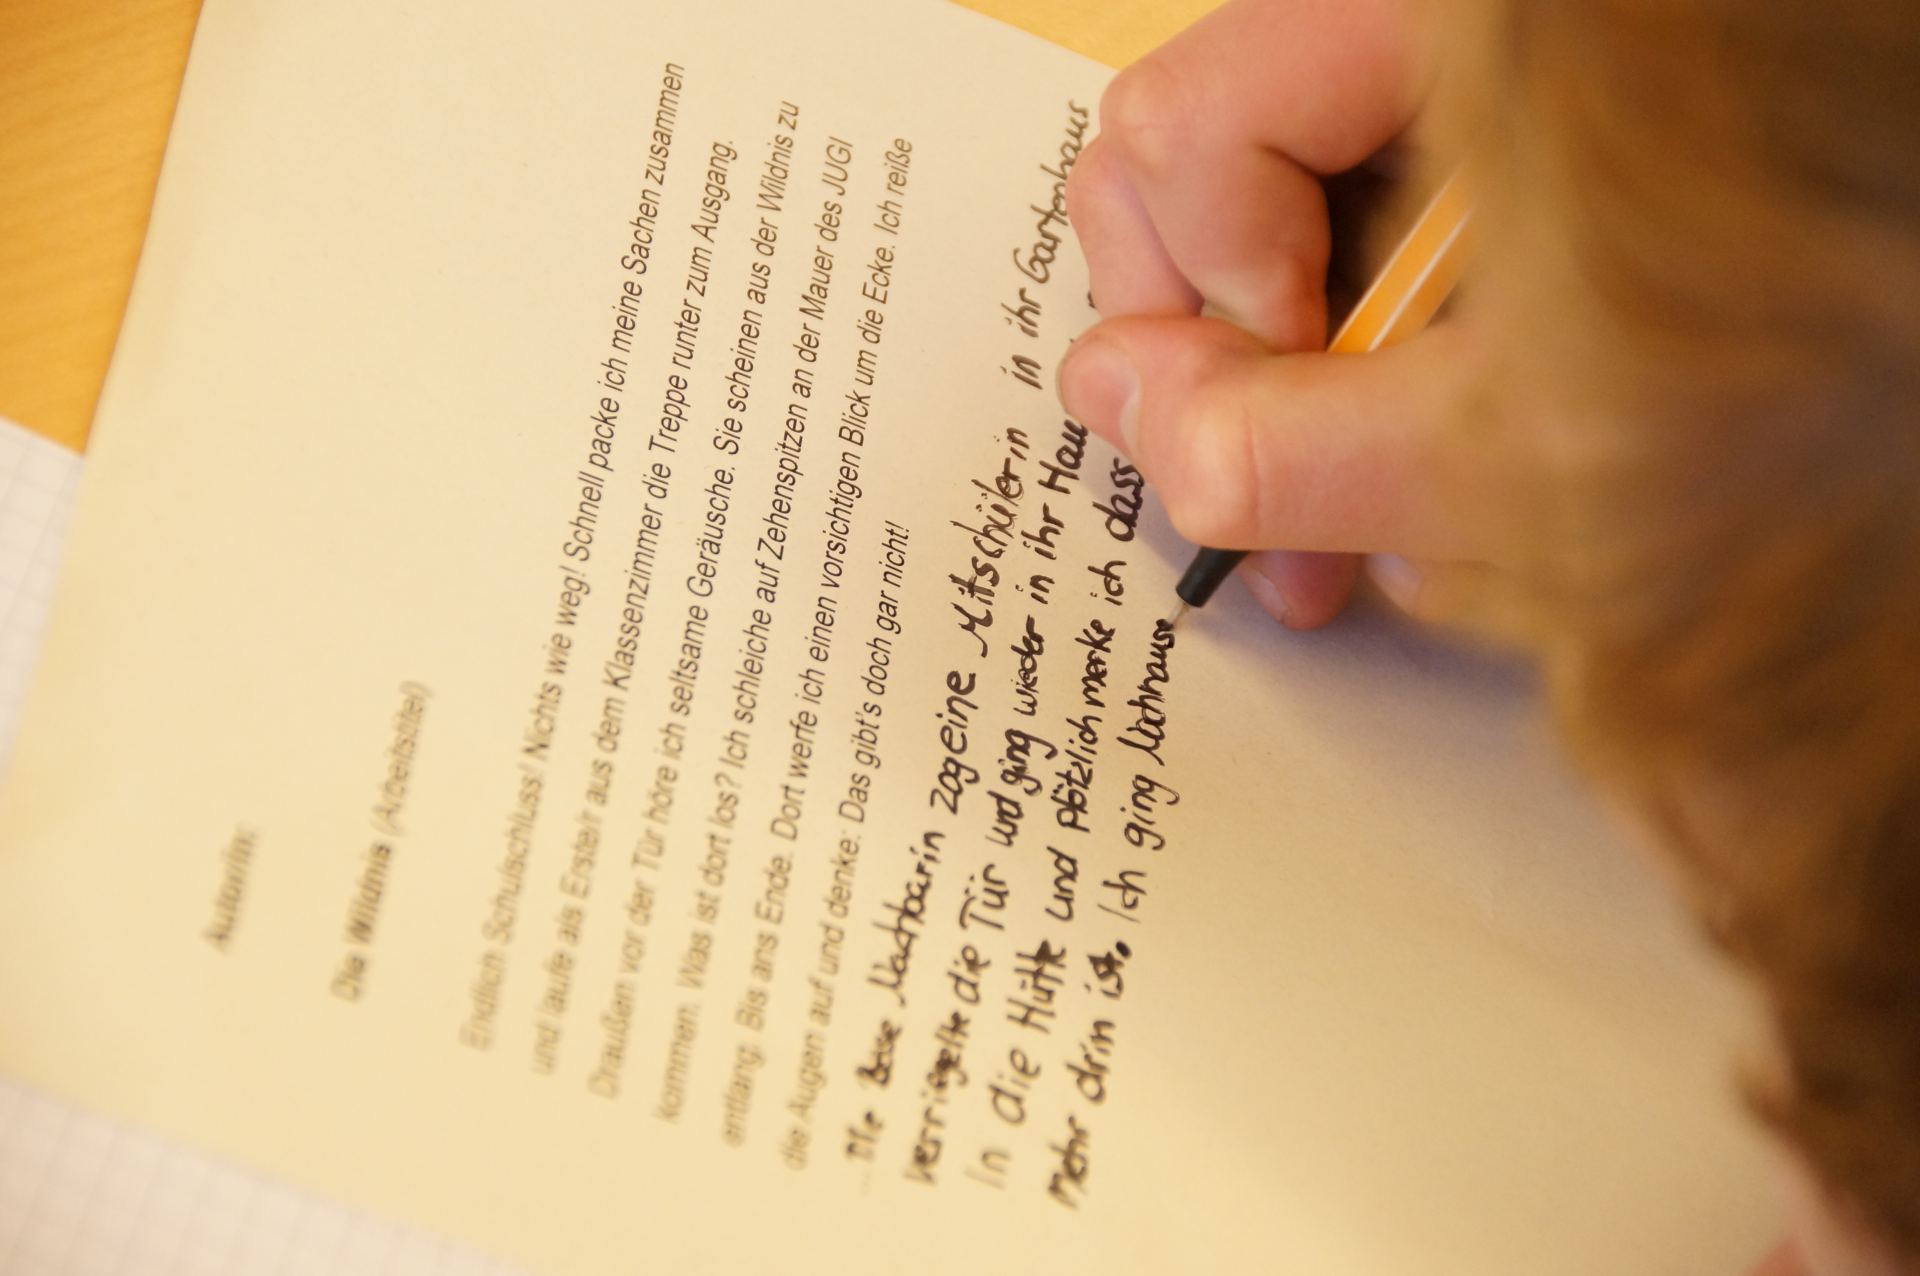 Autor/in:
Die Wildnis (Arbeitstitel)
Endlich Schulschluss! Nichts wie weg! Schnell packe ich meine Sachen zusammen
und laufe als Erste/r aus dem Klassenzimmer die Treppe runter zum Ausgang.
Draußen vor der Tür höre ich seltsame Geräusche. Sie scheinen aus der Wildnis zu
kommen. Was ist dort los? Ich schleiche auf Zehenspitzen an der Mauer des JUGI
entlang. Bis ans Ende. Dort werfe ich einen vorsichtigen Blick um die Ecke. Ich reiße
die Augen auf und denke: Das gibt's doch gar nicht!
... Die böse Nachbarin zog eine Mitschülerin in ihr Gartenhaus
verriegelte die Tür und ging wieder in ihr Hau
In die Hütte und Plötzlich merke ich dass
Mehr drin ist. Ich ging Nachhause